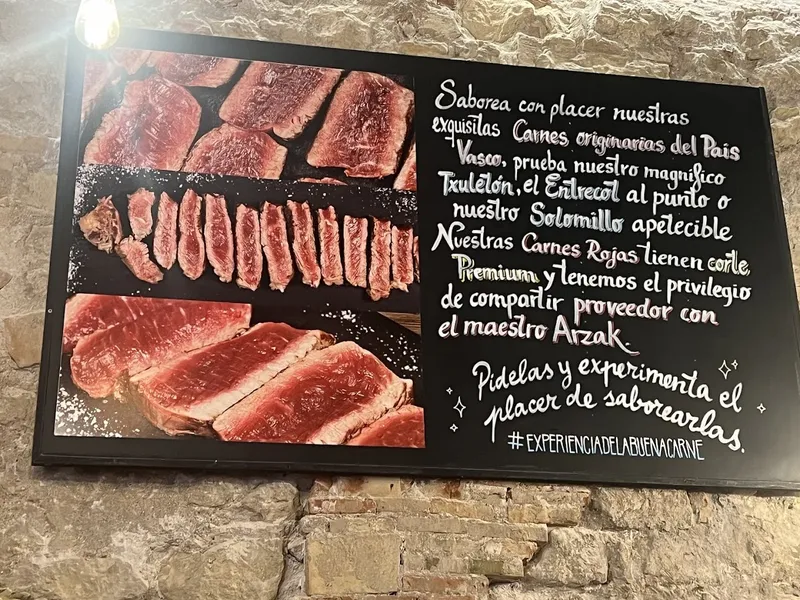 Saborea con placer nuestras
exquisitas Carnes originarias del País
Vasco, prueba nuestro magnífico
Txuletón, el Entrecot al punto o
nuestro Solomillo apetecible
Nuestras Carnes Rojas tienen corte
Premium y tenemos el privilegio
de compartir proveedor con
el maestro Arzak.
Pidelas y experimenta el
placer de saborearlas.
#EXPERIENCIADELABUENACARNE